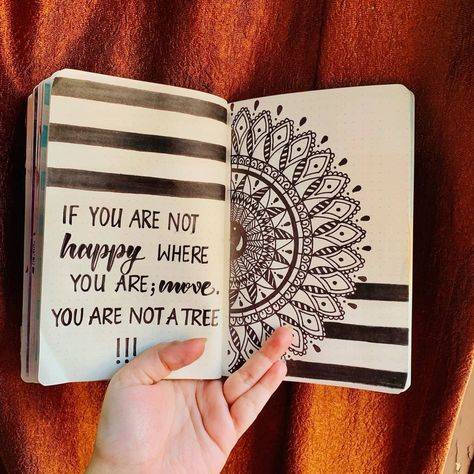 IF YOU ARE NOT
happy WHERE
YOU ARE; move.
YOU ARE NOT A TREE
!!!